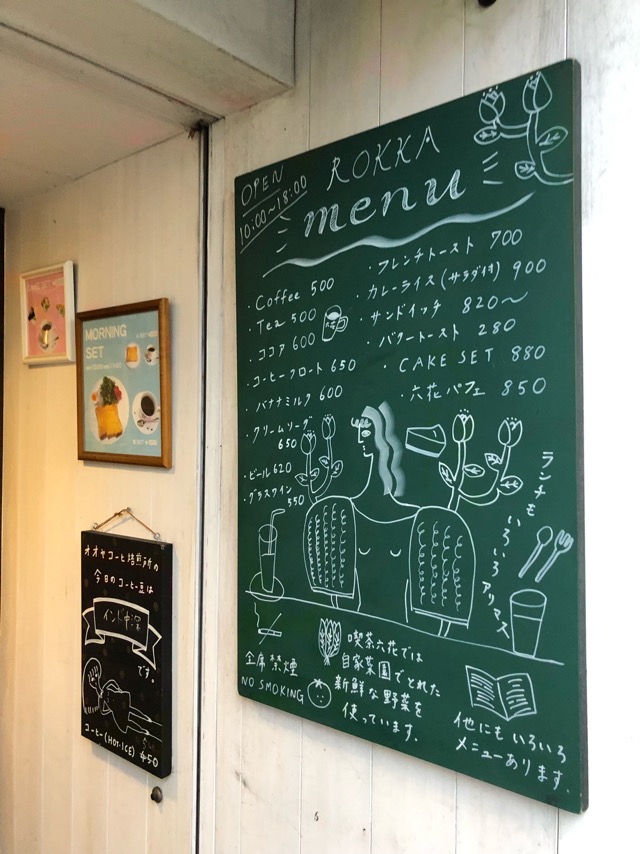 OPEN
10:00〜18:00
ROKKA
menu
・Coffee 500
・Tea 500
・ココア 600
・コーヒーフロート 650
・バナナミルク 600
・クリームソーダ
650
・ビール 620
・グラスワイン
550
・フレンチトースト 700
・カレーライス(サラダ付き) 900
・サンドイッチ 820〜
・バタートースト 280
・CAKE SET 880
・六花パフェ 850
ランチも
いろいろ
アリマス
全席禁煙
NO SMOKING
喫茶六花では
自家菜園でとれた
新鮮な野菜を
使っています.
他にもいろいろ
メニューあります.
CAKE SET
MORNING
SET
オオヤコーヒ焙煎所の
今日のコーヒー豆は
インド中深
です。
コーヒー(HOT・ICE)
450